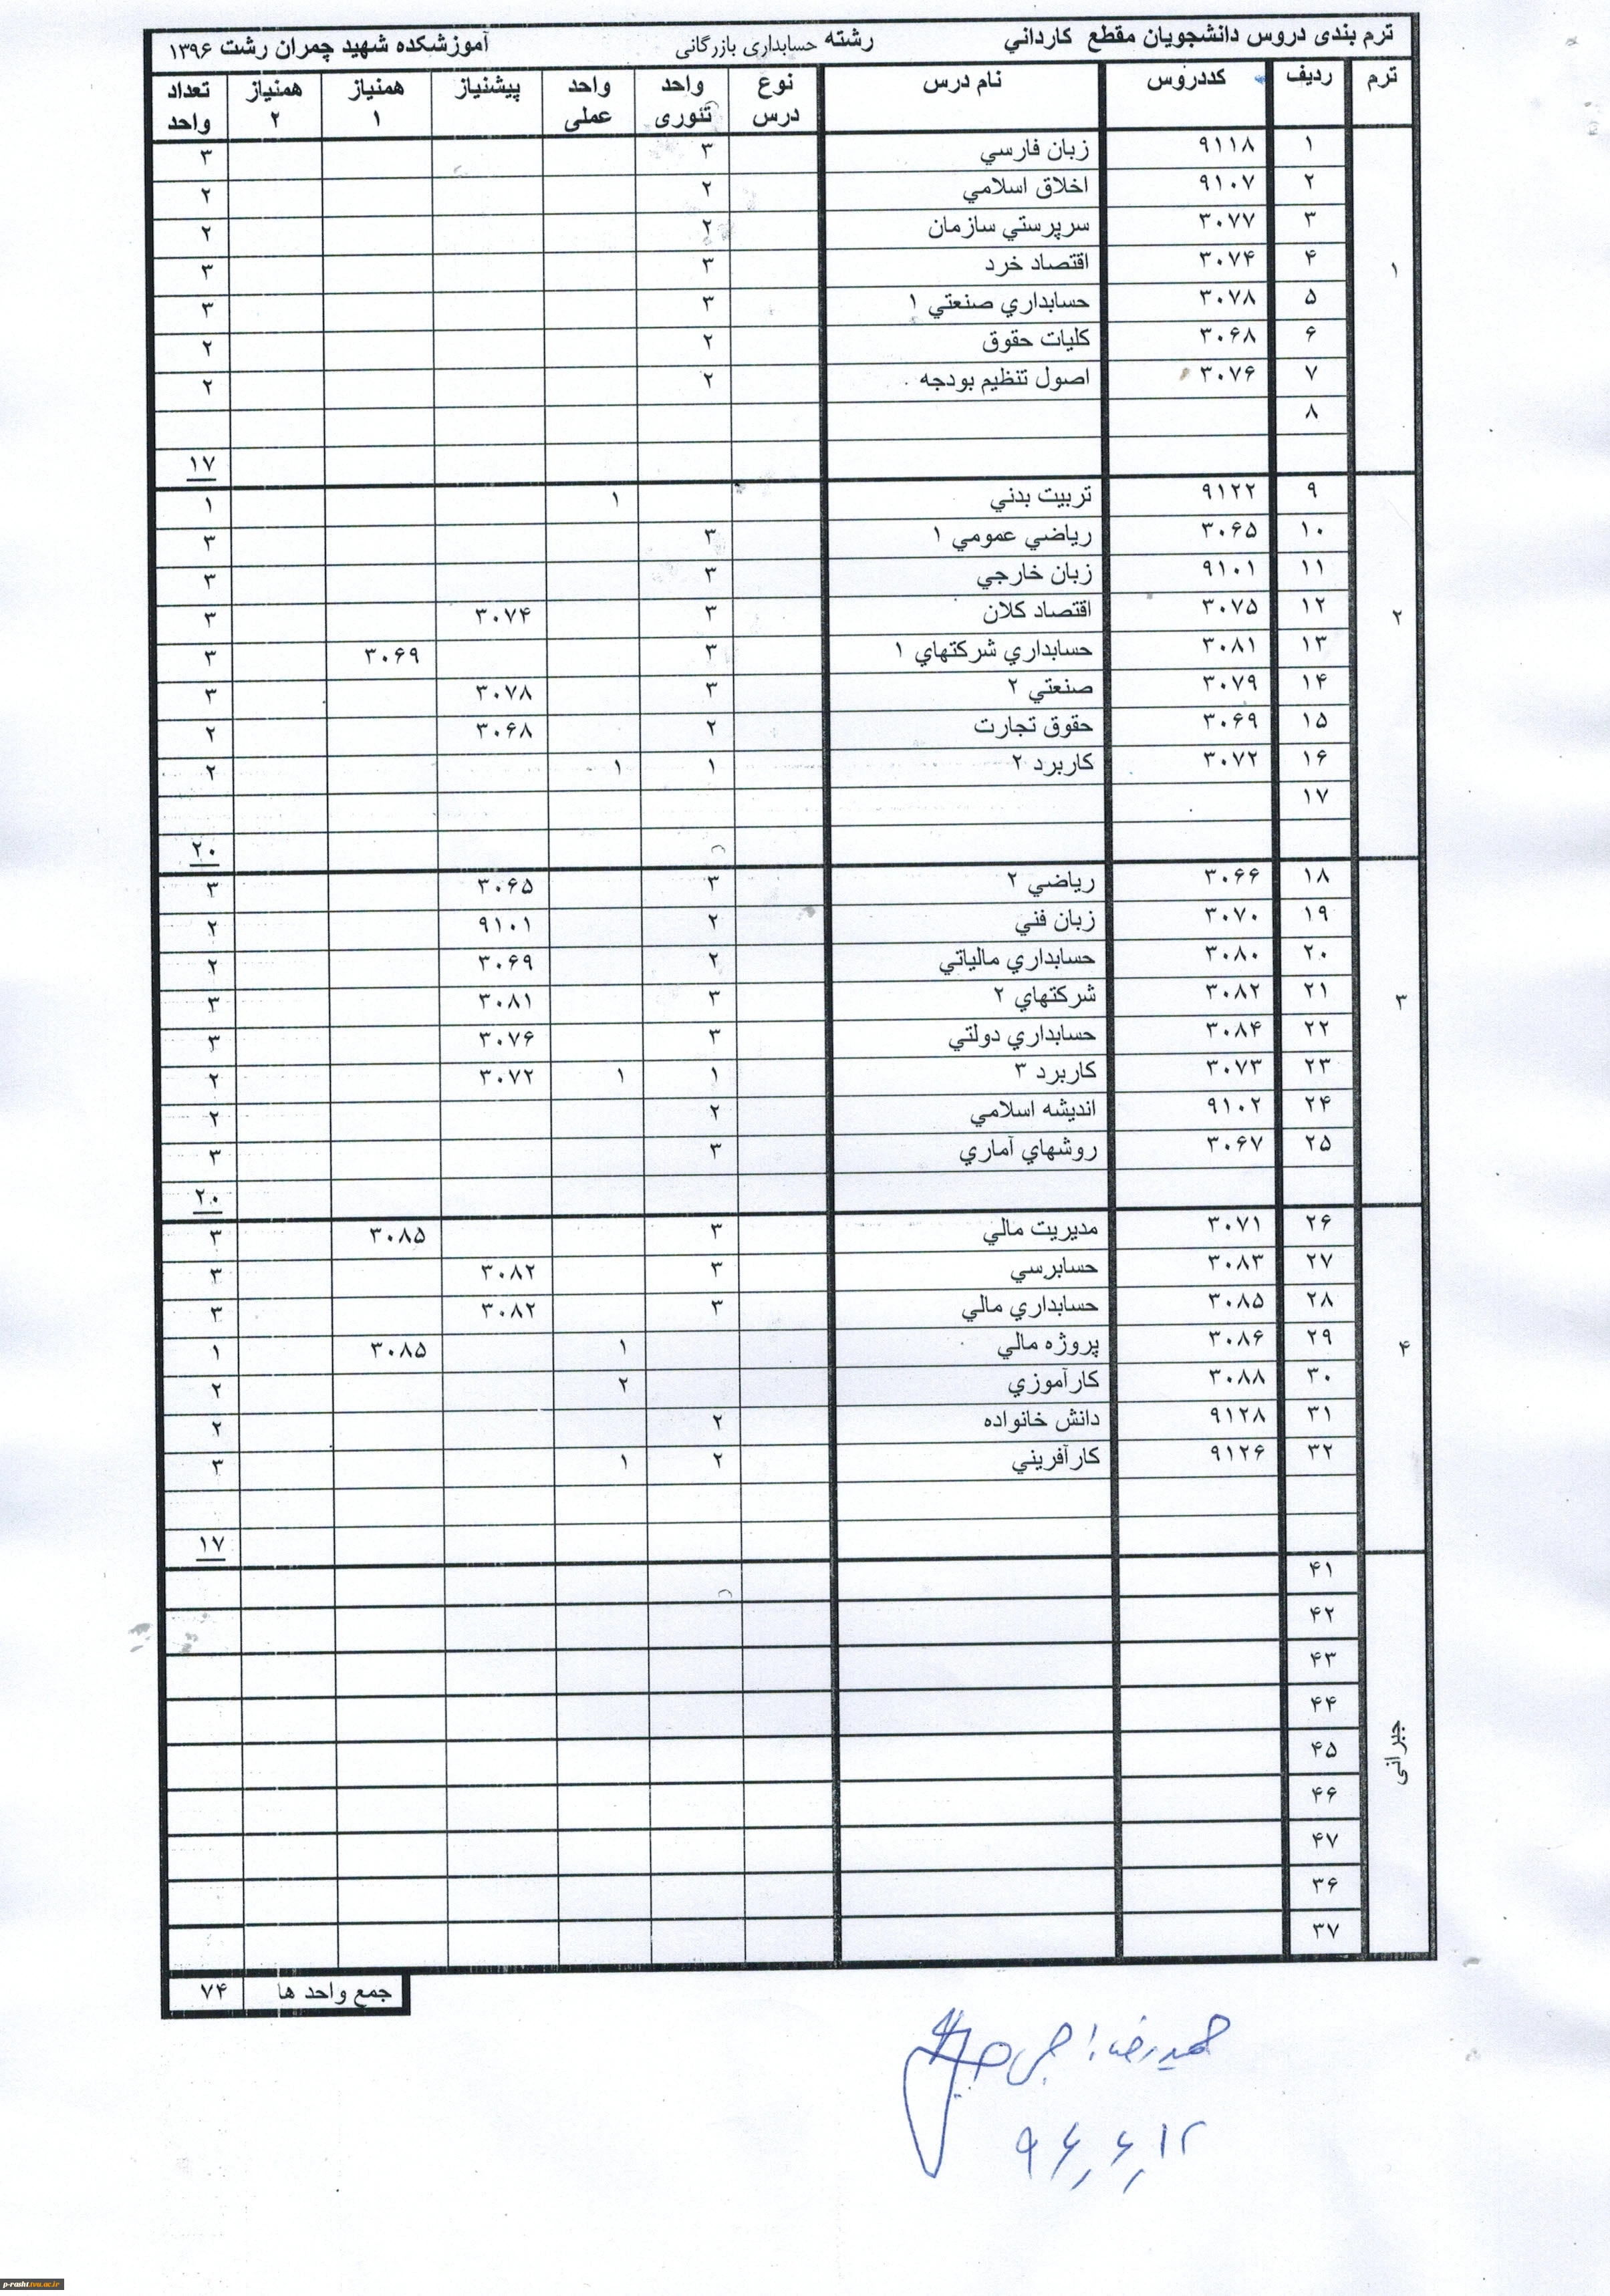 ترم بندی دروس دانشجویان مقطع کارداني رشته حسابداری بازرگانی آموزشکده شهید چمران رشت ۱۳۹۶
ترم ردیف کددروس نام درس نوع درس واحد تئوری واحد عملی پیشنیاز همنیاز ۱ همنیاز ۲ تعداد واحد
۱
۱ ۹۱۱۸ زبان فارسي ۳ ۳
۲ ۹۱۰۷ اخلاق اسلامي ۲ ۲
۳ ۳۰۷۷ سرپرستي سازمان ۲ ۲
۴ ۳۰۷۴ اقتصاد خرد ۳ ۳
۵ ۳۰۷۸ حسابداري صنعتي ۱ ۳ ۳
۶ ۳۰۶۸ كليات حقوق ۲ ۲
۷ ۳۰۷۶ اصول تنظيم بودجه ۲ ۲
۸
۱۷
۲
۹ ۹۱۲۲ تربيت بدني ۱ ۱
۱۰ ۳۰۶۵ رياضي عمومي ۱ ۳ ۳
۱۱ ۹۱۰۱ زبان خارجي ۳ ۳
۱۲ ۳۰۷۵ اقتصاد كلان ۳ ۳۰۷۴ ۳
۱۳ ۳۰۸۱ حسابداري شركتهاي ۱ ۳ ۳۰۶۹ ۳
۱۴ ۳۰۷۹ صنعتي ۲ ۳ ۳۰۷۸ ۳
۱۵ ۳۰۶۹ حقوق تجارت ۲ ۳۰۶۸ ۲
۱۶ ۳۰۷۲ كاربرد ۲ ۱ ۱ ۲
۱۷
۲۰
۳
۱۸ ۳۰۶۶ رياضي ۲ ۳ ۳۰۶۵ ۳
۱۹ ۳۰۷۰ زبان فني ۲ ۹۱۰۱ ۲
۲۰ ۳۰۸۰ حسابداري مالياتي ۲ ۳۰۶۹ ۲
۲۱ ۳۰۸۲ شركتهاي ۲ ۳ ۳۰۸۱ ۳
۲۲ ۳۰۸۴ حسابداري دولتي ۳ ۳۰۷۶ ۳
۲۳ ۳۰۷۳ كاربرد ۳ ۱ ۱ ۳۰۷۲ ۲
۲۴ ۹۱۰۲ انديشه اسلامي ۲ ۲
۲۵ ۳۰۶۷ روشهاي آماري ۳ ۳
۲۰
۴
۲۶ ۳۰۷۱ مديريت مالي ۳ ۳۰۸۵ ۳
۲۷ ۳۰۸۳ حسابرسي ۳ ۳۰۸۲ ۳
۲۸ ۳۰۸۵ حسابداري مالي ۳ ۳۰۸۲ ۳
۲۹ ۳۰۸۶ پروژه مالي ۱ ۳۰۸۵ ۱
۳۰ ۳۰۸۸ كارآموزي ۲ ۲
۳۱ ۹۱۲۸ دانش خانواده ۲ ۲
۳۲ ۹۱۲۶ كارآفريني ۲ ۱ ۳
۱۷
جبرانی
۴۱
۴۲
۴۳
۴۴
۴۵
۴۶
۴۷
۳۶
۳۷
جمع واحد ها ۷۴
حمیدرضا
۹۶٫۶٫۱۲
p-rasht.tvu.ac.ir